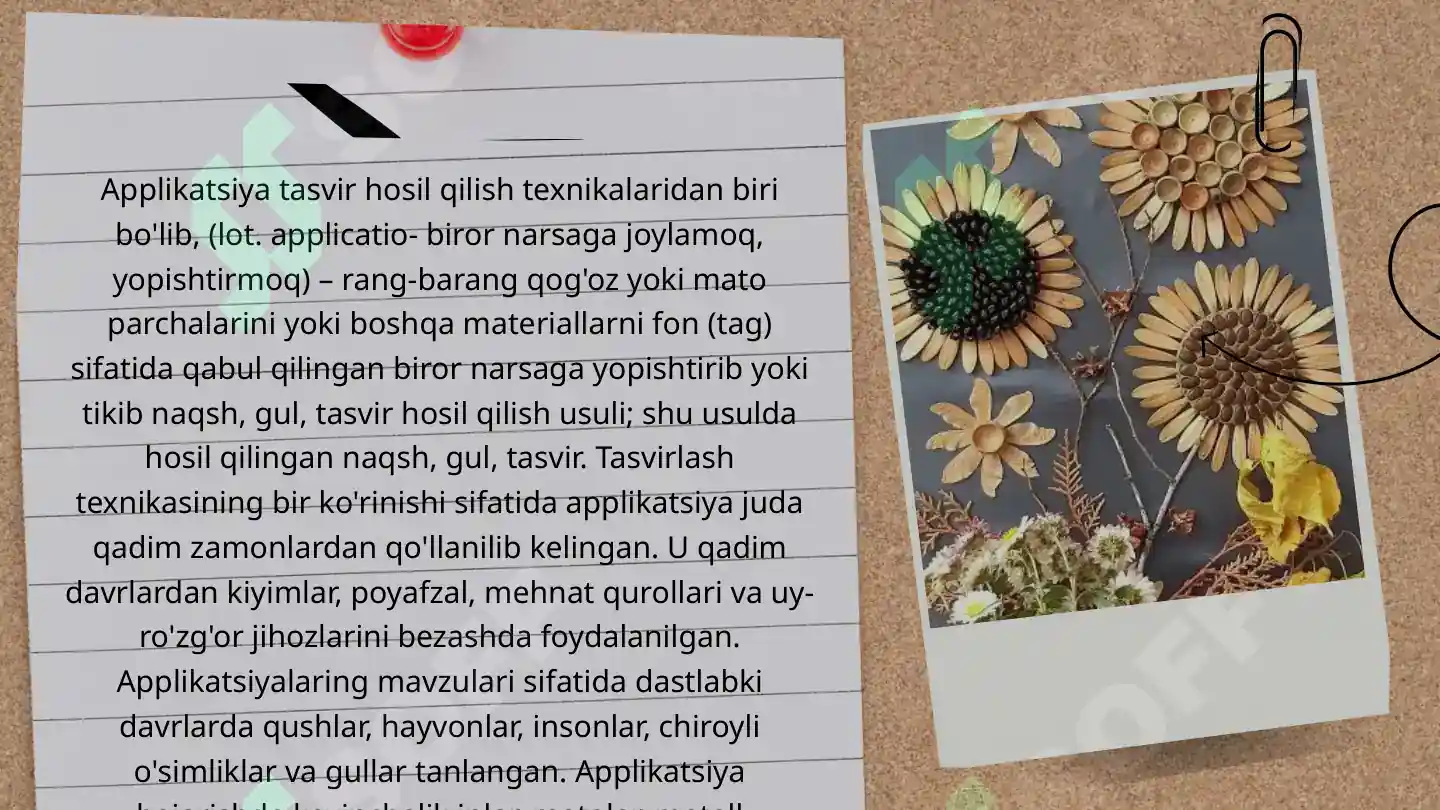 Applikatsiya tasvir hosil qilish texnikalaridan biri
bo'lib, (lot. applicatio- biror narsaga joylamoq,
yopishtirmoq) – rang-barang qog'oz yoki mato
parchalarini yoki boshqa materiallarni fon (tag)
sifatida qabul qilingan biror narsaga yopishtirib yoki
tikib naqsh, gul, tasvir hosil qilish usuli; shu usulda
hosil qilingan naqsh, gul, tasvir. Tasvirlash
texnikasining bir ko'rinishi sifatida applikatsiya juda
qadim zamonlardan qo'llanilib kelingan. U qadim
davrlardan kiyimlar, poyafzal, mehnat qurollari va uy-
ro'zg'or jihozlarini bezashda foydalanilgan.
Applikatsiyalaring mavzulari sifatida dastlabki
davrlarda qushlar, hayvonlar, insonlar, chiroyli
o'simliklar va gullar tanlangan. Applikatsiya